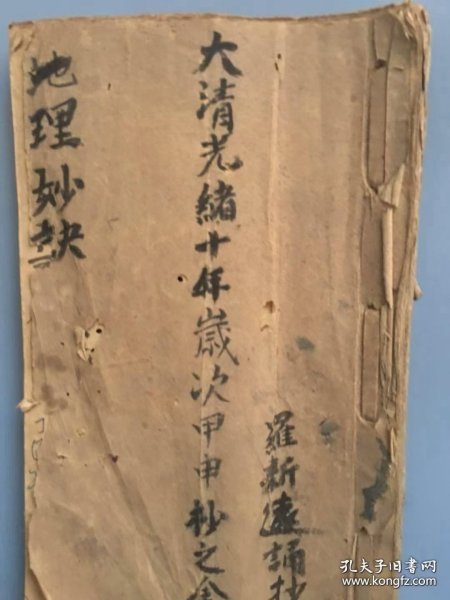 大清光緒十年歲次甲申抄之
羅新遠誦抄
地理妙訣
孔夫子旧书网
www.kongfz.com